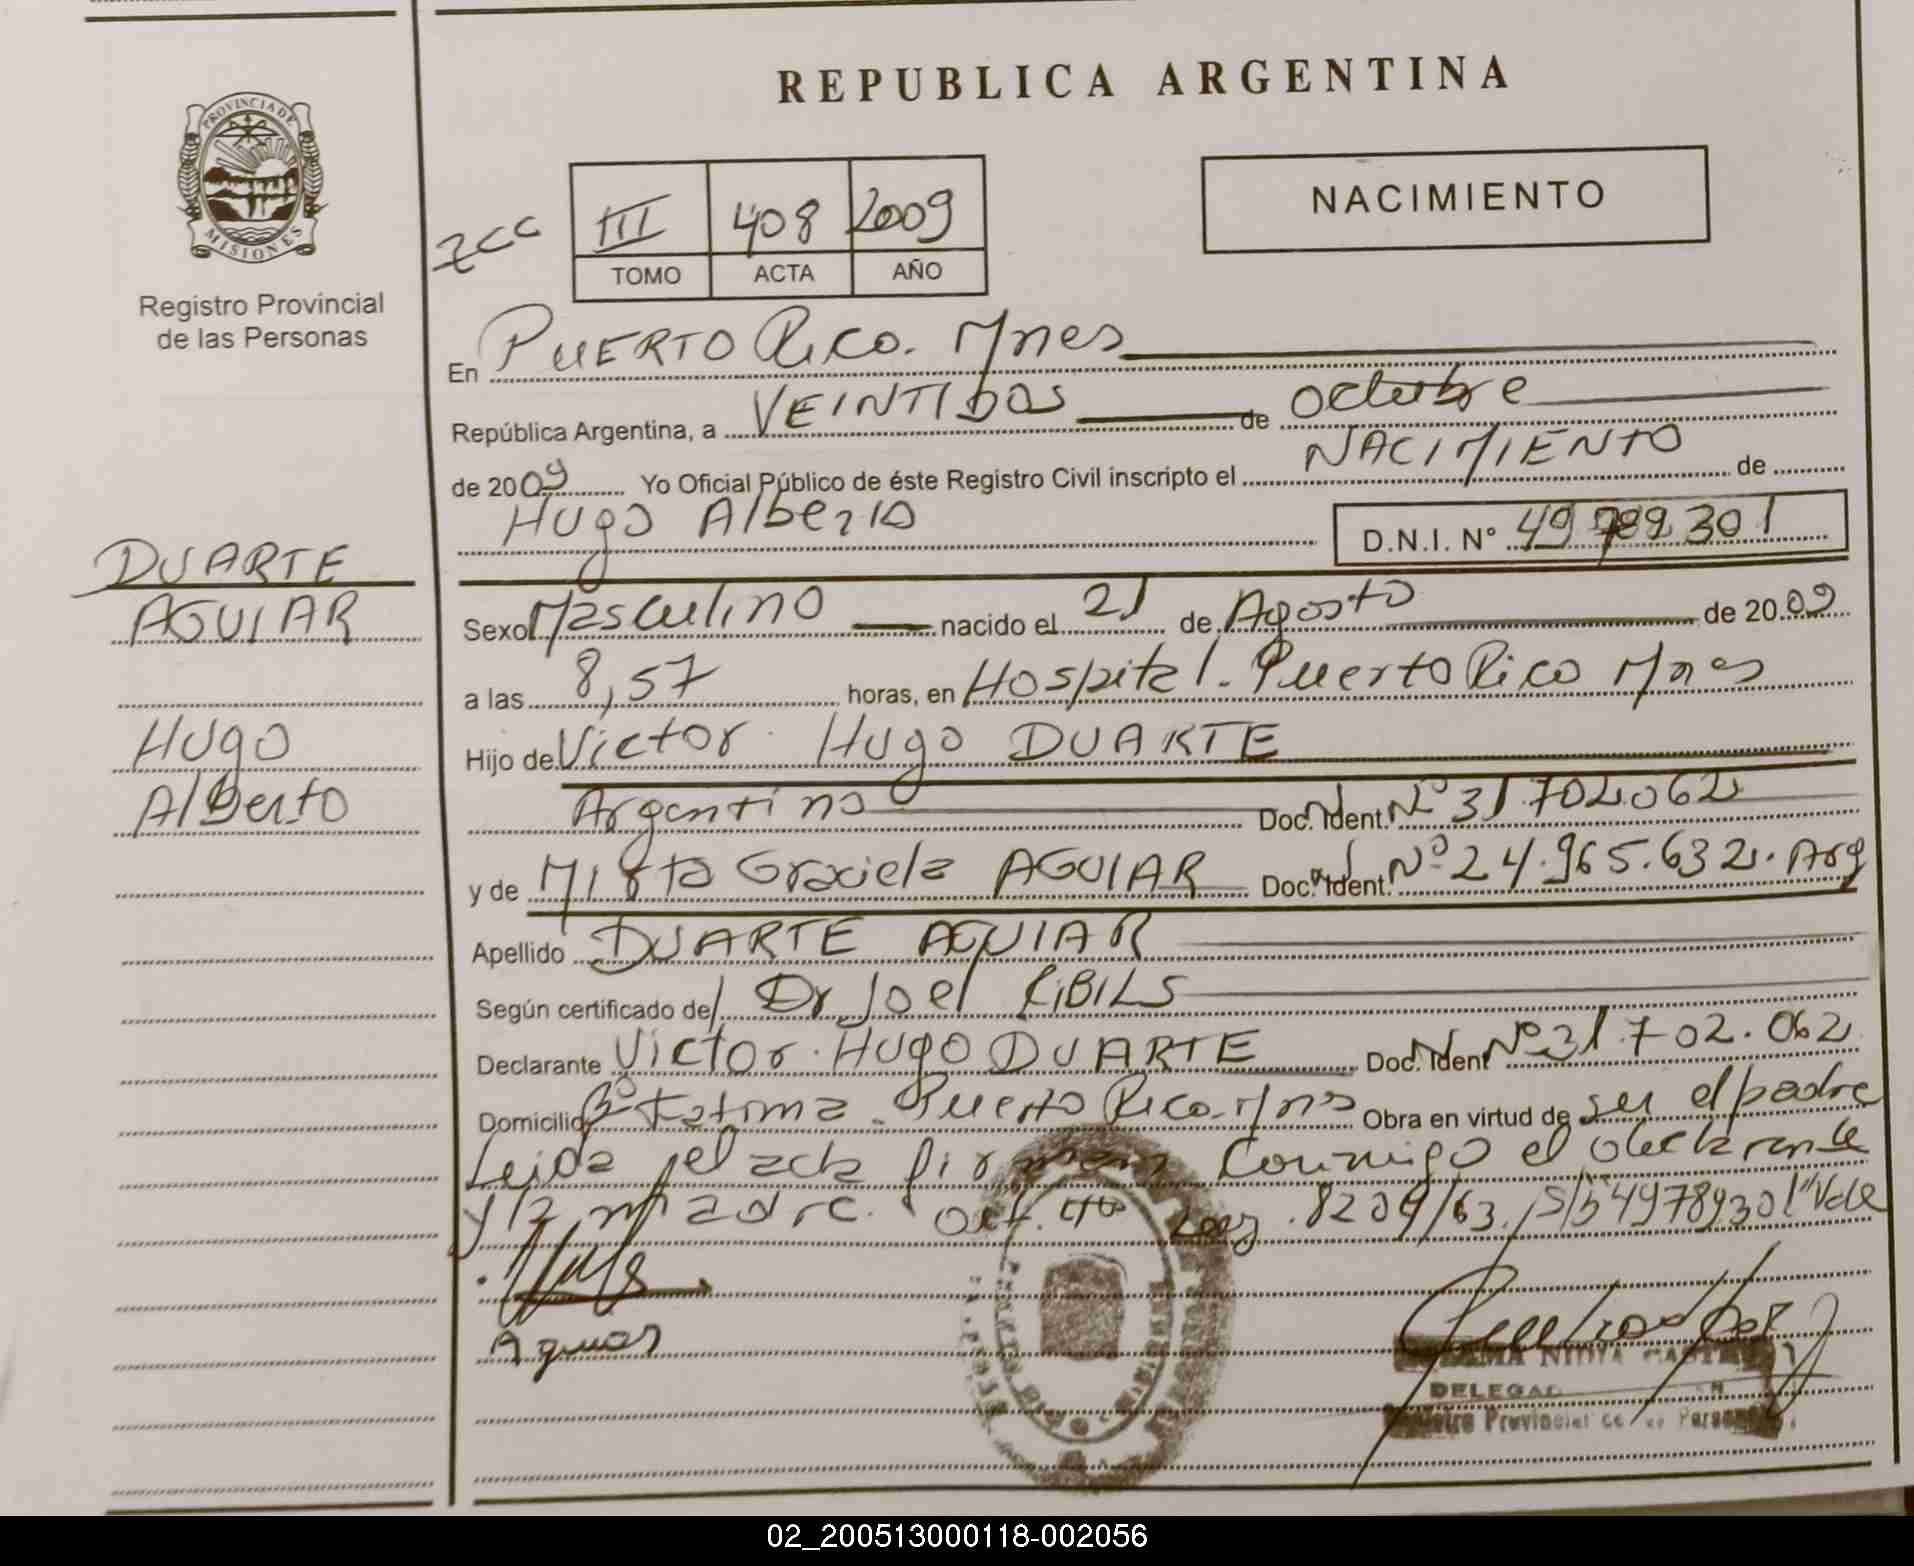 REPUBLICA ARGENTINA
PROVINCIA DE
MISIONES
Registro Provincial
de las Personas
NACIMIENTO
III 408 2009
TOMO ACTA AÑO
En PUERTO Rico. Mnes
República Argentina, a VEINTIDOS de octubre
de 2009 Yo Oficial Público de éste Registro Civil inscripto el NACIMIENTO de
Hugo Alberto
D.N.I. Nº 49 789 301
DUARTE
AGUIAR
Hugo
Alberto
Sexo Masculino nacido el 21 de Agosto de 2009
a las 8,57 horas, en Hospital. Puerto Rico Mnes
Hijo de Victor Hugo DUARTE
Argentino Doc. Ident. Nº 31.702.062
y de Mirta Graciela AGUIAR Doc. Ident. Nº 24.965.632. Arg
Apellido DUARTE AGUIAR
Según certificado del Dr Joel RIBILS
Declarante Victor Hugo DUARTE Doc. Ident Nº 31.702.062
Domicilio Bº Fatima. Puerto Rico. Mnes Obra en virtud de ser el padre
Leida el acta firman conmigo el declarante
y la madre. 8204/63. S/b 49789301 "Vale
Aguiar
NIDIA
DELEGAD
Registro Provincial de las Personas
02_200513000118-002056